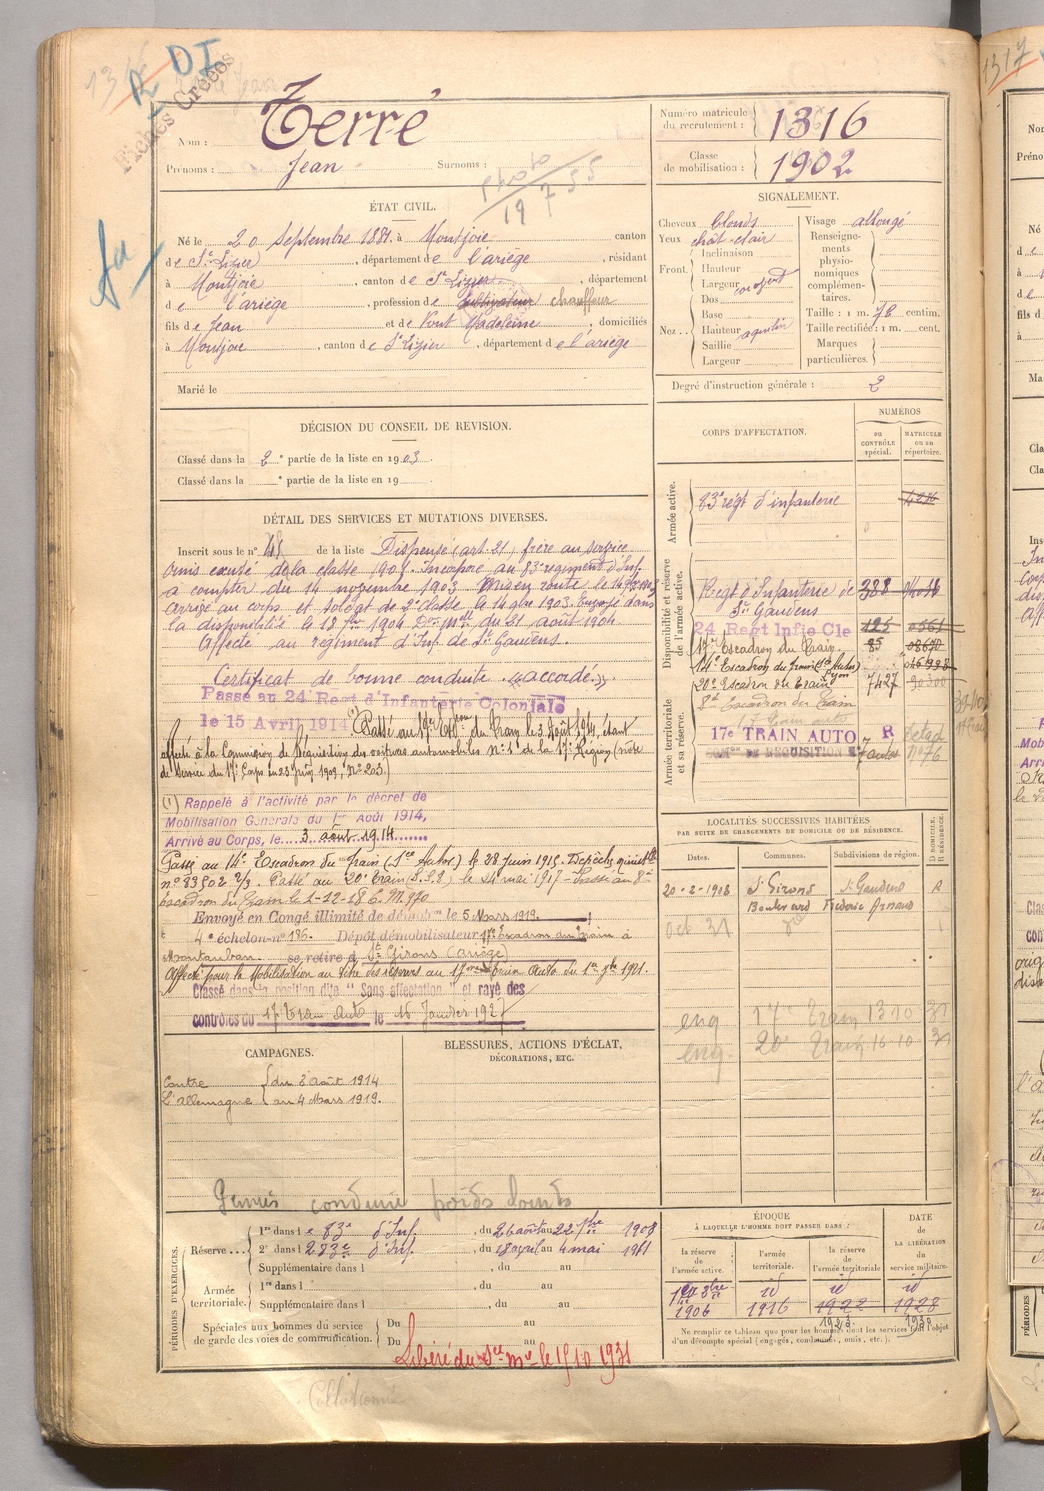 1316
R DI
Fiches Créées
fa
Nom : Terré
Prénoms : Jean Surnoms :
Photo
19 7 55
Numéro matricule du recrutement : 1316
Classe de mobilisation : 1902
ÉTAT CIVIL.
Né le 20 Septembre 1881 à Montjoie canton
de St Lizier, département de l'ariège, résidant
à Montjoie, canton de St Lizier, département
de l'ariège, profession de cultivateur chauffeur
fils de Jean et de Pont Madeleine, domiciliés
à Montjoie, canton de St Lizier, département de l'ariège
Marié le
SIGNALEMENT.
Cheveux blonds
Yeux chât-clair
Front. Inclinaison
Hauteur
Largeur
Nez.. Dos
Base
Hauteur
Saillie
Largeur
aquilin
Visage allongé
Renseignements physionomiques complémentaires.
Taille : 1 m. 78 centim.
Taille rectifiée : 1 m. cent.
Marques particulières.
Degré d'instruction générale : 2
DÉCISION DU CONSEIL DE REVISION.
Classé dans la 2e partie de la liste en 1903.
Classé dans la e partie de la liste en 19
DÉTAIL DES SERVICES ET MUTATIONS DIVERSES.
Inscrit sous le n° 48 de la liste Dispensé (art. 21) frère au service
omis excusé de la classe 1901. Incorporé au 83e régiment d'Inf.
à compter du 14 novembre 1903 Mis en route le 14 9bre 1903
arrivé au corps et soldat de 2e classe le 14 9bre 1903. Envoyé dans
la disponibilité le 18 7bre 1904 Don mlle du 21 août 1904
Affecté au régiment d'Inf. de St Gaudens.
Certificat de bonne conduite "accordé".
Passé au 24e Regt d'Infanterie Coloniale
le 15 Avril 1914 (1) Passé au 17e Escron du Train le 3 Août 1914, étant
affecté à la Commission de Réquisition des voitures automobiles N° 1 de la 17e Région (note
de Service du 17e Corps du 23 Juin 1909, N° 203.)
(1) Rappelé à l'activité par le décret de
Mobilisation Générale du 1er Août 1914,
Arrivé au Corps, le 3 août 1914
Passé au 14e Escadron du train (Sce Autos) le 28 Juin 1915. Dépêche ministlle
n° 33502 2/3. Passé au 20e train (S.P.2) le 24 mai 1917 - Passé au 8e
escadron du Train le 1-12-18 E.M. 970
Envoyé en Congé illimité de démob le 5 Mars 1919.
4e échelon n° 186. Dépôt démobilisateur 17e Escadron du train à
Montauban se retire à St Girons (Ariège)
Affecté pour la Mobilisation au titre des réserves au 17e Train Auto du 1er 1921.
Classé dans la position dite "Sans affectation" et rayé des
contrôles du 17e Train Auto le 15 Janvier 1927
CORPS D'AFFECTATION.
NUMÉROS
DU CONTRÔLE spécial.
MATRICULE ou au répertoire.
Armée active.
83e régt d'infanterie 4236
Disponibilité et réserve de l'armée active.
Régt d'Infanterie de St Gaudens 388
24 Regt Infie Cle 125 0561
17e Escadron du Train 85 08670
14e Escadron du train (Sce Autos) Lyon
20e Escadron du train 7427 20300
8e Escadron du train
17 train auto
Armée territoriale et sa réserve.
17e TRAIN AUTO R
COMon DE REQUISITION
7 autos N° 76
LOCALITÉS SUCCESSIVES HABITÉES
PAR SUITE DE CHANGEMENTS DE DOMICILE OU DE RÉSIDENCE.
Dates. Communes. Subdivisions de région. D DOMICILE. R RÉSIDENCE.
20-2-1908 St Girons St Gaudens R
Boulevard Frédéric Arnaud
oct 31
eng 14e Train 13 10 31
eng. 20e Train 16-10 31
CAMPAGNES.
Contre L'allemagne du 3 août 1914
au 4 Mars 1919.
BLESSURES, ACTIONS D'ÉCLAT,
DÉCORATIONS, ETC.
Permis conduire poids lourds
PÉRIODES D'EXERCICES.
Réserve... 1re dans le 83e d'Inf., du 26 août au 22 7bre 1908
2e dans le 283e d'Inf., du 18 avril au 4 mai 1911
Supplémentaire dans l , du au
Armée territoriale. 1re dans l , du au
Supplémentaire dans l , du au
Spéciales aux hommes du service de garde des voies de communication. Du au
Du au
Libéré du Sce mre le 15 10 1931
Collationné
ÉPOQUE
À LAQUELLE L'HOMME DOIT PASSER DANS :
la réserve de l'armée active.
l'armée territoriale.
la réserve de l'armée territoriale
DATE de LA LIBÉRATION du service militaire.
1er 8bre 1906
id 1916
id 1922 1923
id 1928 1930
Ne remplir ce tableau que pour les hommes dont les services font l'objet
d'un décompte spécial (engagés, condamnés, omis, etc.).